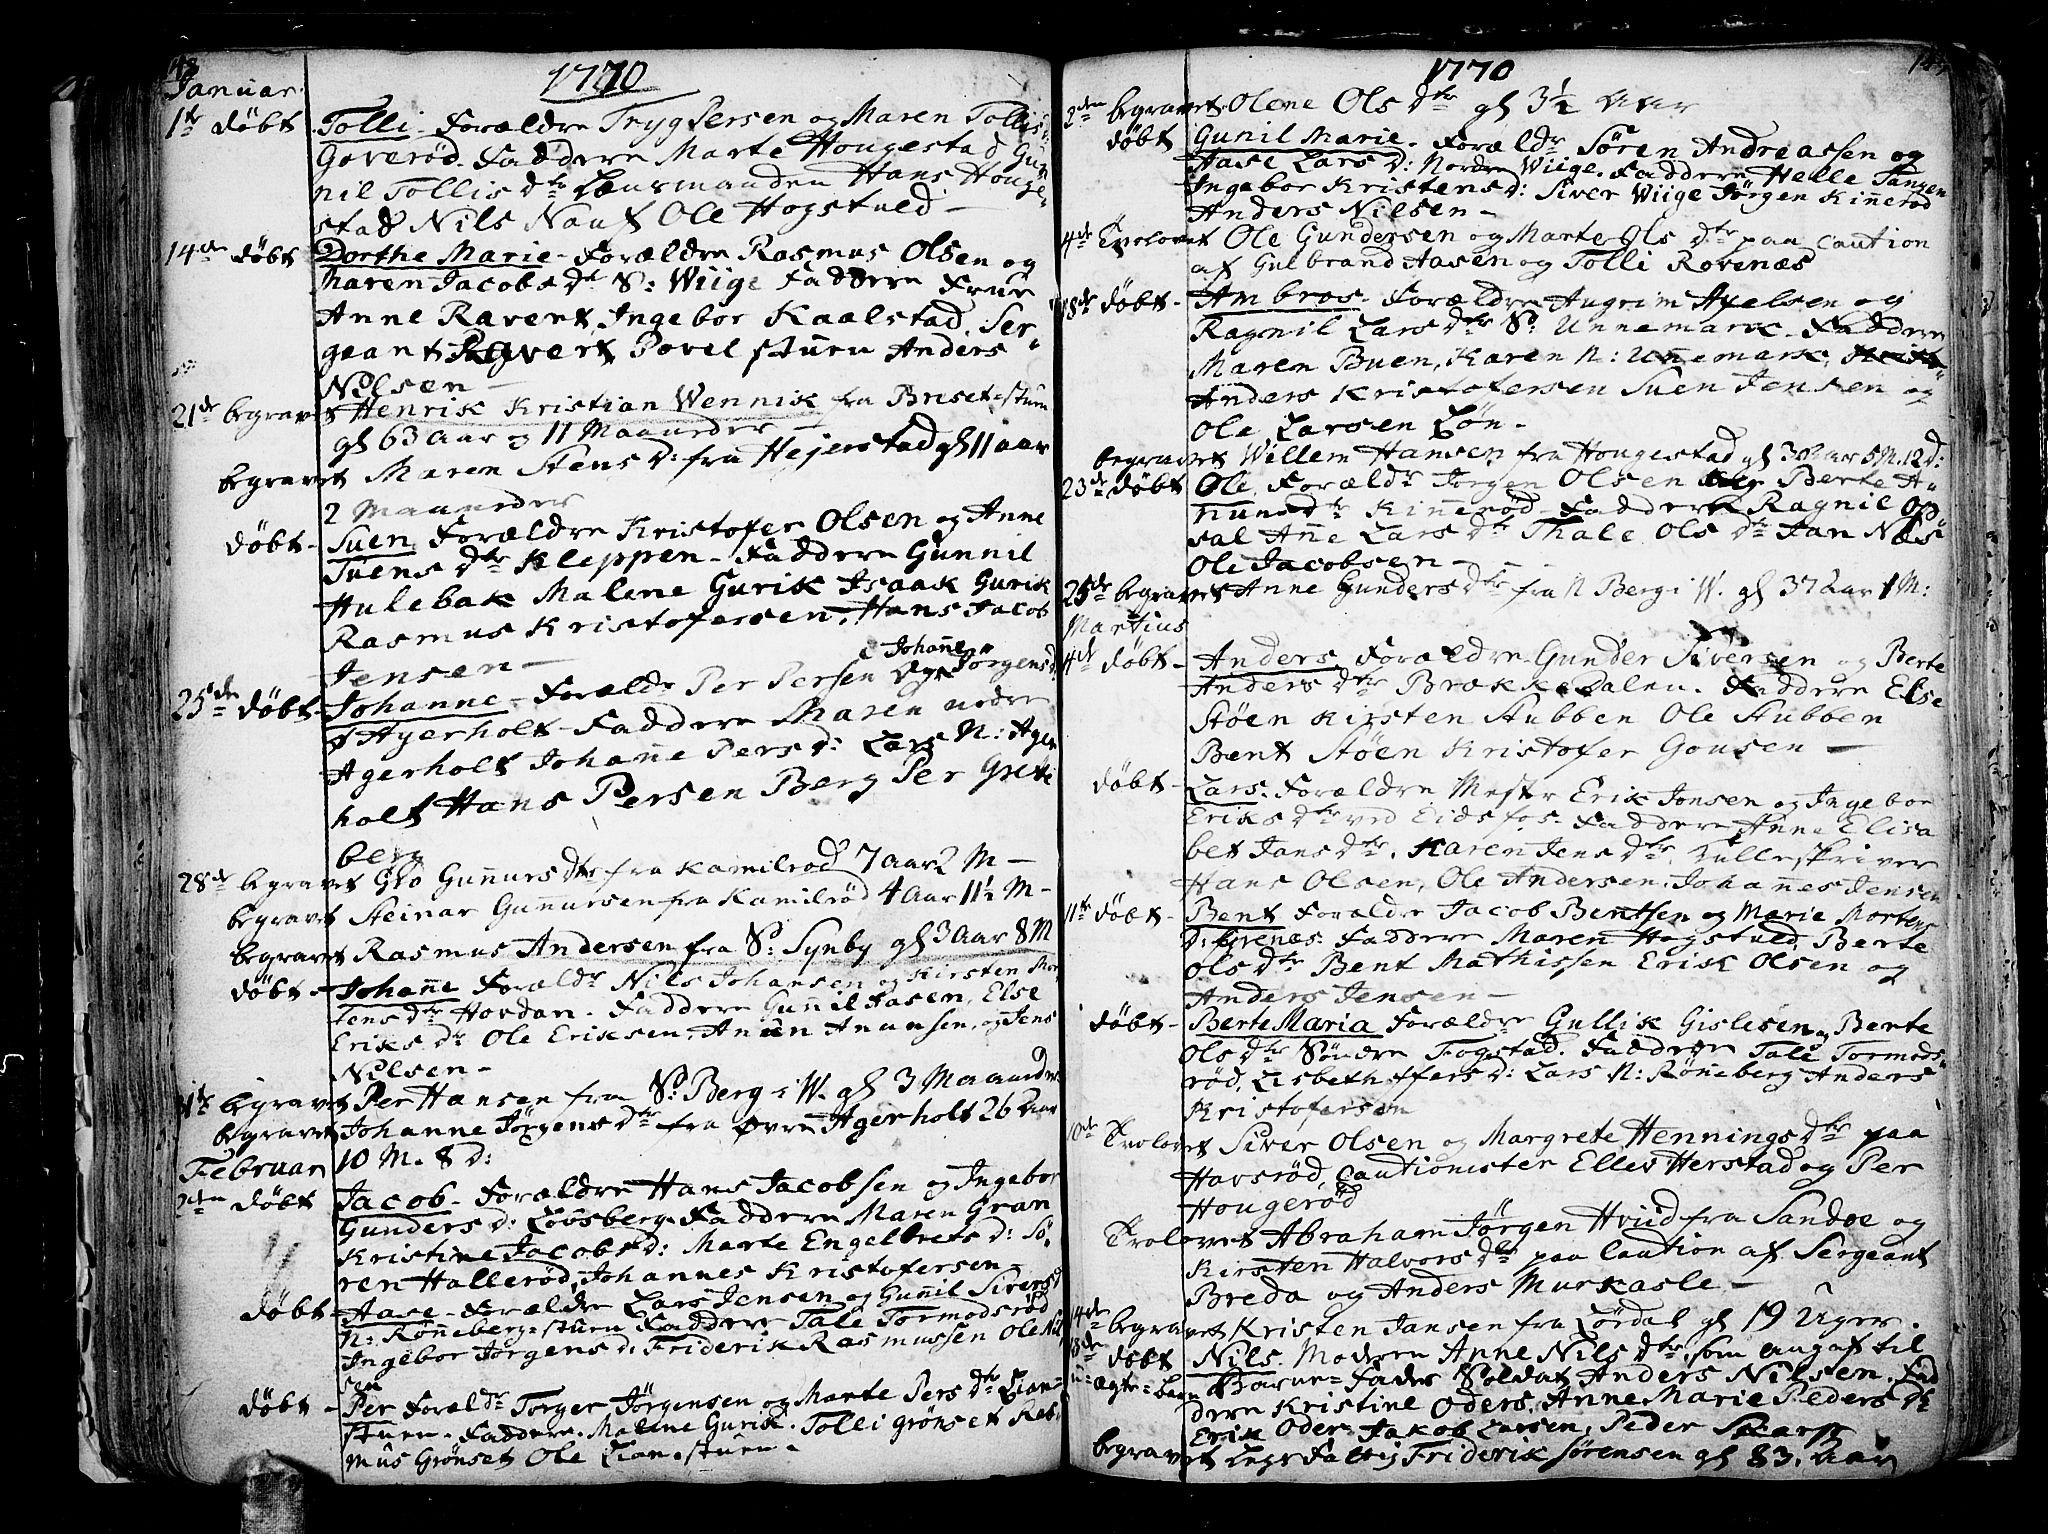 148
1770
Januar
1te døbt Tolli. Forældre Tryg Persen og Maren Tollis
Goverød. Faddere Marte Hougestad Gun
nil Tollis Dtr Lænsmanden Hans Houge-
stad Nils Nauf Ole Hogstuld
14de døbt Dorthe Marie. Forældre Rasmus Olsen og
Maren Jacobs Dtr S: Wiige Faddere Frue
Anne Ravert, Ingebor Kaalstad, Ser-
geant Ravert Povel stuen Anders
Nilsen
21de begravet Henrik Kristian Wennik fra Briset=stuen
gl 63 aar og 11 Maaneder
begravet Maren Stens D: fra Hejerstad gl 11 aar
2 Maaneder
døbt Suen Forældre Kristofer Olsen og Anne
Suens Dtr Kleppen. Faddere Gunnil
Hulebak Malene Gurik Isaak Gurik
Rasmus Kristofersen, Hans Jacob
Jensen
25de døbt Johanne. Foreld: Per Persen og Johanne Jørgens d
Agerholt. Faddere Maren nedre
Agerholt Johanne Pers D: Lars N: Ager
holt Hans Persen Berg Per Greti
berg
28de begravet Gro Gunnurs Dtr fra Kamilrød 7 aar 2 M
begravet Steinar Gunnursen fra Kamilrød 4 Aar 11½ M
begravet Rasmus Andersen fra S: Synby gl 3 Aar 8 M
døbt Johanne Foreldr Nils Johansen og Kirsten Mor
tens Dtr Hovdan. Faddere Gunnil Aasen, Else
Eriks Dr Ole Eriksen, Anun Anunsen, og Jens
Nilsen
begravet Per Hansen fra S: Berg i W. gl 3 Maaneder
begravet Johanne Jørgens Dtr fra øvre Agerholt 26 Aar
10 M. 8 d:
Februar
2den døbt Jacob. Forældre Hans Jacobsen og Ingebor
Gunders D: Lovsberg. Faddere Maren Gran
Kristine Jacobs D: Marte Engelbrets D: Sö-
ren Hallerød, Johannes Kristofersen
døbt Aase. Forældre Lars Jensen og Gunnil Sivers d
N: Rønneberg=stuen Faddere Tale Tormodsrød
Ingebor Jørgens d. Friderik Rasmussen Ole Nil
sen
døbt Per Foreldr Torger Jørgensen og Marte Pers Dtr Lian=
stuen. Faddere. Malene Gurik. Tolli Grønset Ras
mus Grønset Ole Lian=stuen.
1770
2den begravet Olene Ols Dtr gl 3½ Aar
døbt Gunil Marie. Foreldr Søren Andreassen og
Aase Lars D: Nordre Wiige. Faddere Helle Tangen
Ingebor Kristens D: Siver Wiige Jørgen Kinnerød
Anders Nilsen
4de Trolovet Ole Gundersen og Marte Ols Dtr paa Caution
af Gulbrand Aasen og Tolli Rovenæs
18de døbt Ambros. Forældre Angrim Axelsen og
Ragnil Lars Dtr S: Unnemark. Faddere
Maren Buen, Karen N: Unnemark,
Anders Kristofersen Suen Jensen og
Ole Larsen Løn
begravet Willem Hansen fra Hougestad gl 30 Aar 5 M. 12 D:
23de døbt Ole Foreldr Jørgen Olsen Berte A-
nuns Dtr Kinnerød. Faddere Ragnil Op
sal Anne Lars Dtr Thale Ols Dtr Jan Næs
Ole Jacobsen
25de begravet Anne Gunders Dtr fra N Berg i W. gl 37 Aar 1 M:
Martius
4de døbt Anders Forældre Gunder Siversen og Berte
Anders Dtr Brækkedalen. Faddere Else
Støen Kirsten Stubben Ole Stubben
Bent Støen Kristofer Gousen
døbt Lars. Forældre Mestr Erik Jonsen og Ingebor
Eriks Dtr ved Eidsfos. Faddere Anne Elisa
bet Jans Dtr. Karen Jens Dtr, Hulleskriver
Hans Olsen, Ole Andersen, Johannes Jensen
11te døbt Bent Forældre Jacob Bentsen og Marie Mortens
D: Grenæs. Faddere Maren Hogstuld, Berte
Ols Dtr Bent Mathissen Erik Olsen og
Anders Jensen
døbt Berte Maria Forældre Gullik Gislesen og Berte
Ols Dtr Søndre Fogstad. Faddere Tale Tormods
rød, Lisbeth Iffers D: Lars N: Rønneberg Anders
Kristofersen
Trolovet Siver Olsen og Margrete Hennings Dtr paa
Havsrød, Cautionister Elles Herstad og Per
Hougerød
Trolovet Abraham Jørgen Hviid fra Sandøe og
Kirsten Halvors Dtr paa Caution af Sergeant
Breda og Anders Murkasle
14de begravet Kristen Jansen fra Lørdal gl 19 Uger.
døbt Nils. Moderen Anne Nils Dtr, som angaf til
u=ægte=barn Barne=Fader Soldat Anders Nilsen. Fad
dere Kristine Oders, Anne Marie Peders Dtr
Erik Oder, Jakob Larsen, Peder Skarp
begravet Legs Fattig Friderik Sørensen gl 83. Aar